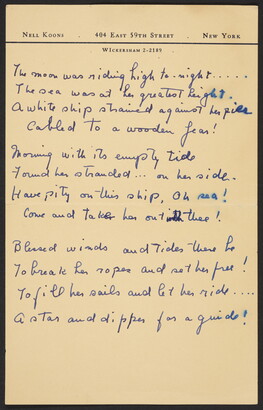 NELL KOONS . 404 EAST 59TH STREET . NEW YORK
WICKERSHAM 2-2185
The moon was riding high to-night......
The sea was at her greatest height.
A white ship strained against her pier
Cabled to a wooden fear!
Morning with its empty tide
Found her stranded... on her side.
Have pity on this ship, Oh sea!
Come and take her out with thee!
Blessed winds and Tides there be
To break her ropes and set her free!
To fill her sails and let her ride....
A star and dipper for a guide!